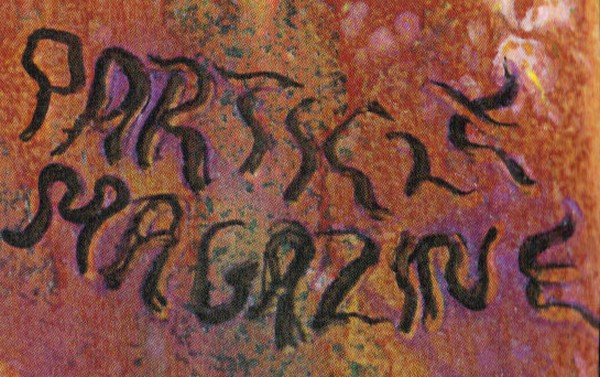 PARTICLE
MAGAZINE